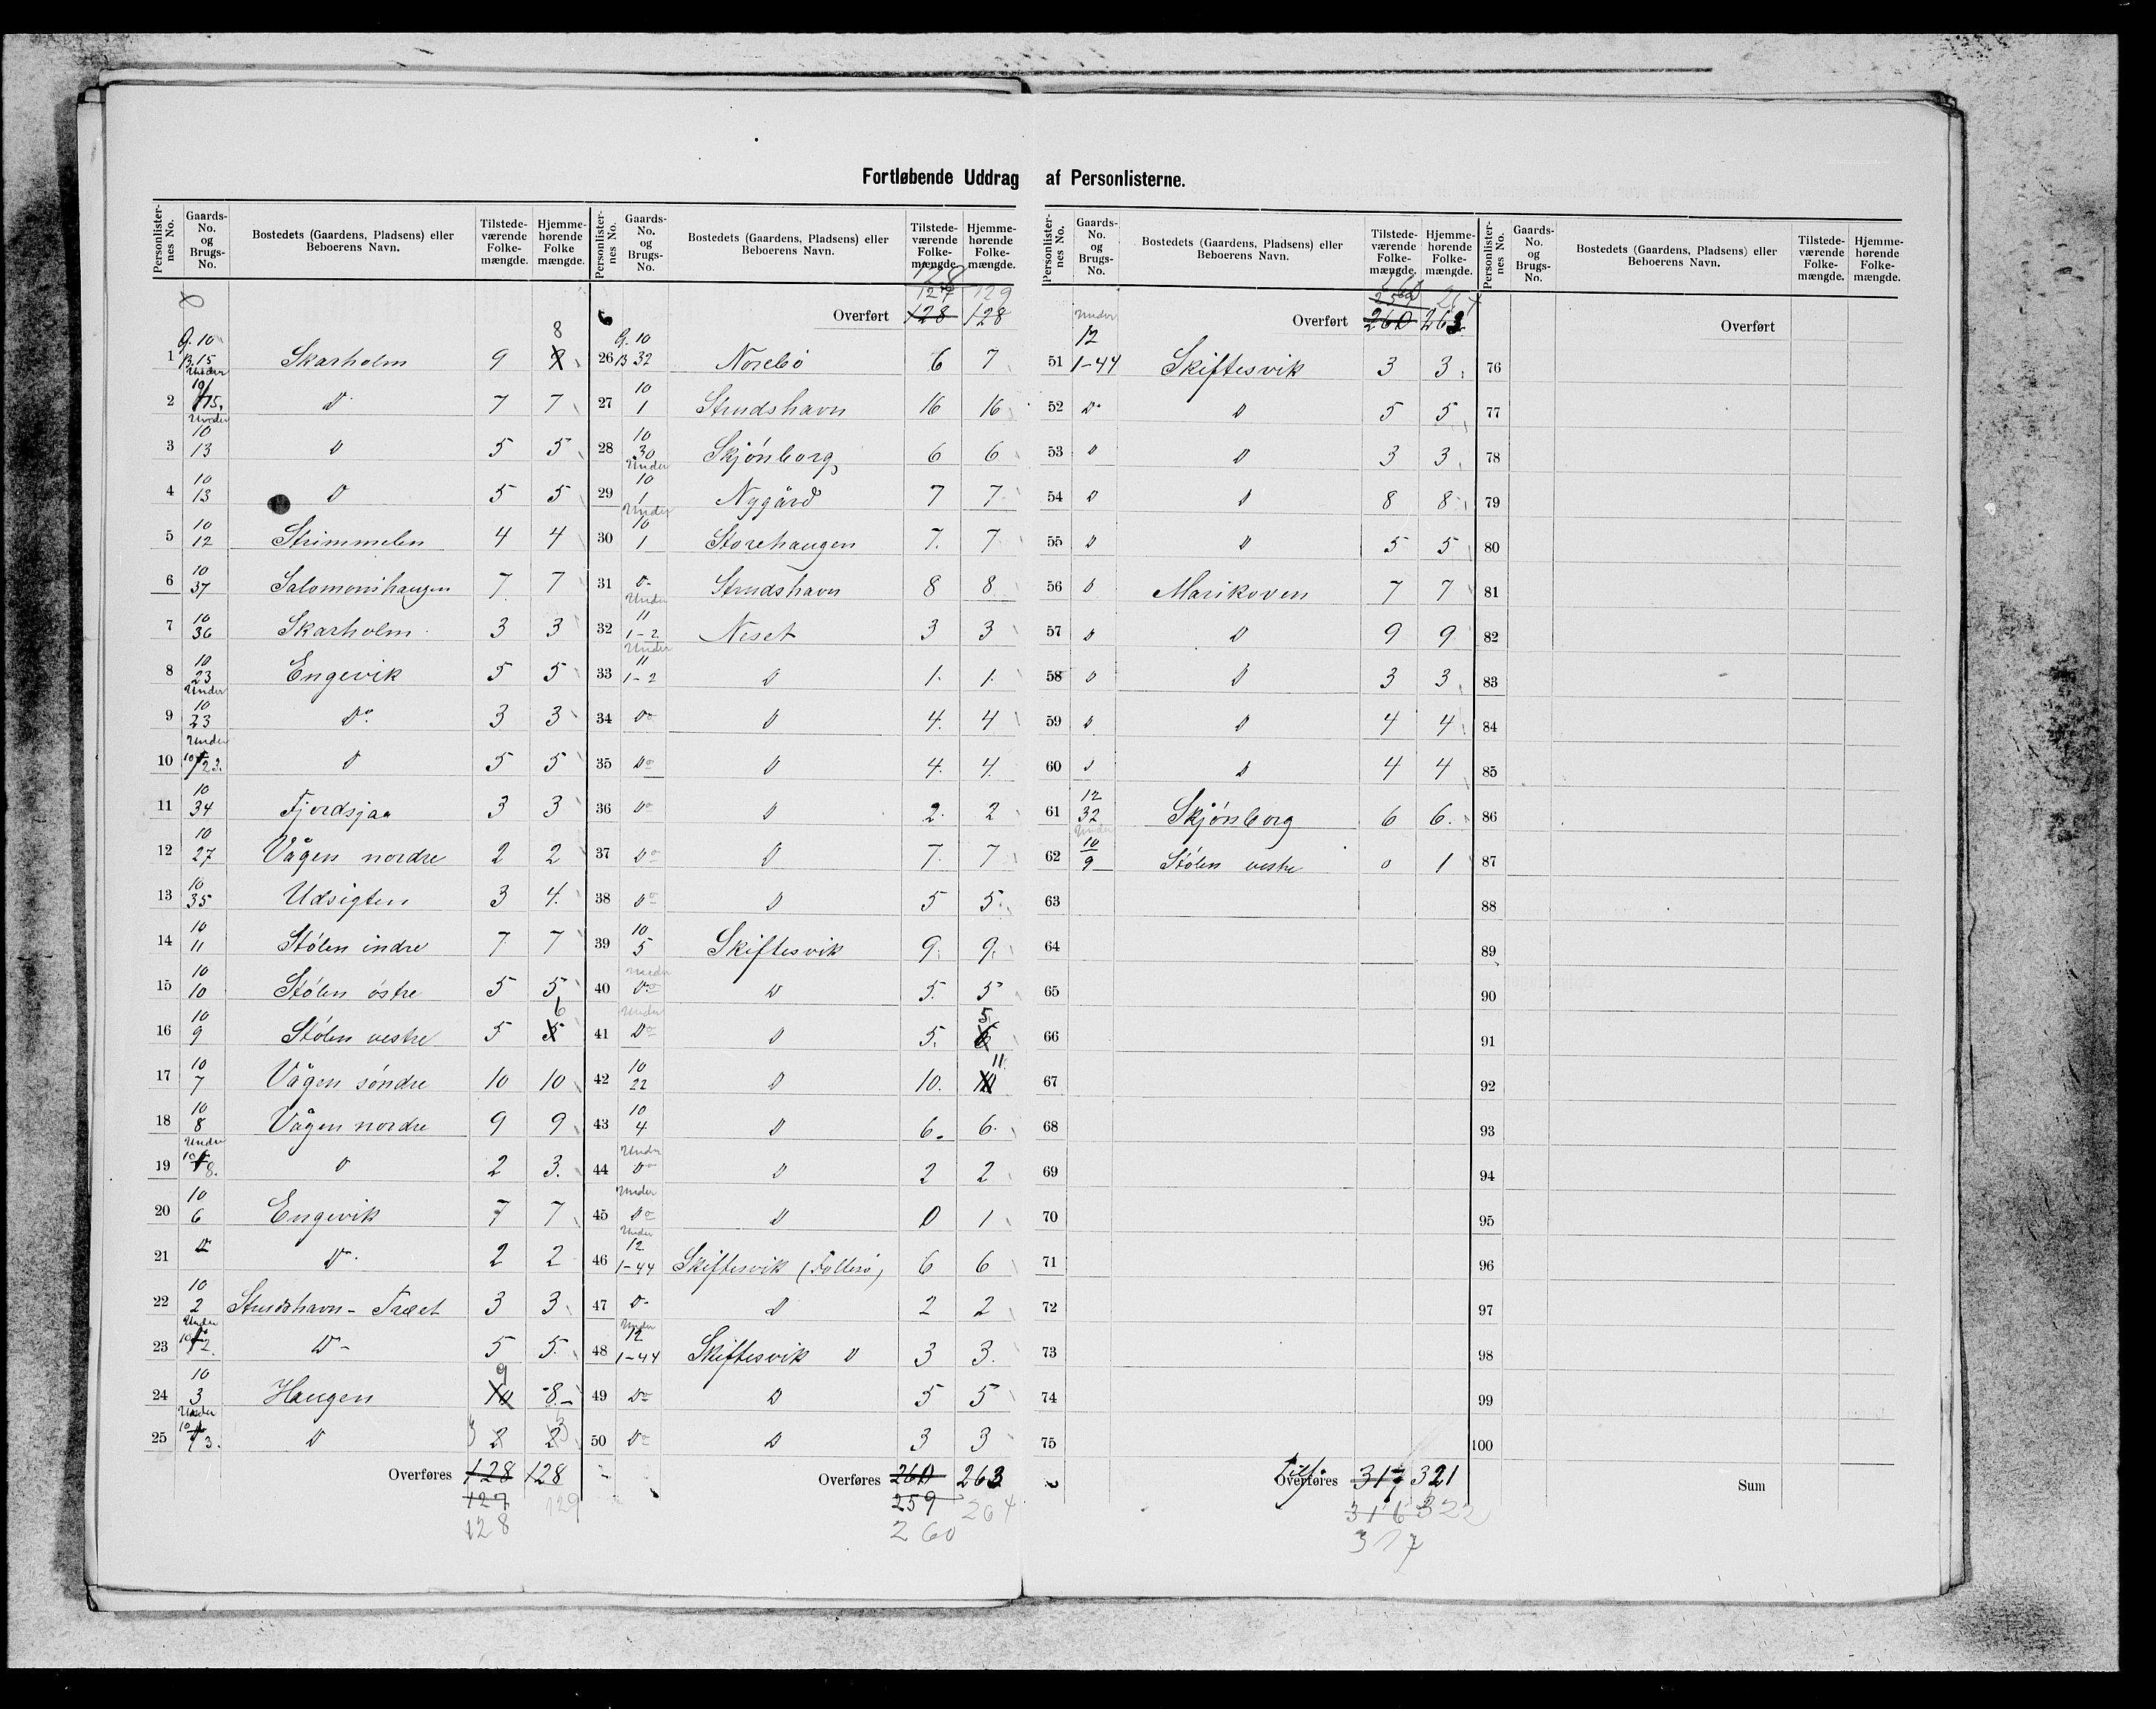 Fortløbende Uddrag af Personlisterne.
Personlister-nes No. | Gaards-No. og Brugs-No. | Bostedets (Gaardens, Pladsens) eller Beboerens Navn. | Tilstede-værende Folke-mængde. | Hjemme-hørende Folke mængde.
1 | G. 10 B. 15 | Skarholm | 9 | 8
2 | Under 10/15. | D | 7 | 7
3 | Under 10 13 | D | 5 | 5
4 | 10 13 | D | 5 | 5
5 | 10 12 | Strimmelen | 4 | 4
6 | 10 37 | Salomonshaugen | 7 | 7
7 | 10 36 | Skarholm | 3 | 3
8 | 10 23 | Engevik | 5 | 5
9 | Under 10 23 | Do. | 3 | 3
10 | Under 10/23. | D | 5 | 5
11 | 10 34 | Fjordsjaa | 3 | 3
12 | 10 27 | Vågen nordre | 2 | 2
13 | 10 35 | Udsigten | 3 | 4.
14 | 10 11 | Stølen indre | 7 | 7
15 | 10 10 | Stølen østre | 5 | 5
16 | 10 9 | Stølen vestre | 5 | 5 6
17 | 10 7 | Vågen søndre | 10 | 10
18 | 10 8 | Vågen nordre | 9 | 9
19 | Under 10/8. | D | 2 | 3.
20 | 10 6 | Engevik | 7 | 7
21 | D | D. | 2 | 2
22 | 10 2 | Strudshavn - Træet | 3 | 3
23 | Under 10/2. | D- | 5 | 5.
24 | 10 3 | Haugen | 10 9 | 8.-
25 | Under 10/3. | D | 2 3 | 2 3
Overføres 128 128
127 129
128
Personlister-nes No. | Gaards-No. og Brugs-No. | Bostedets (Gaardens, Pladsens) eller Beboerens Navn. | Tilstede-værende Folke-mængde. | Hjemme-hørende Folke-mængde.
128
127 129
Overført 128 128
26 | G. 10 B 32 | Norebø | 6 | 7
27 | 10 1 | Strudshavn | 16 | 16
28 | 10 30 | Skjønborg | 6 | 6
29 | Under 10 1 | Nygård | 7 | 7
30 | Under 10 1 | Storehaugen | 7. | 7
31 | D- | Strudshavn | 8 | 8
32 | Under 11 1-2 | Neset | 3 | 3
33 | Under 11 1-2 | D | 1. | 1.
34 | Do | D | 4. | 4
35 | Do | D | 4. | 4.
36 | Do | D | 2. | 2
37 | Do | D | 7. | 7
38 | Do | D | 5 | 5.
39 | 10 5 | Skiftesvik | 9. | 9.
40 | Under Do | D | 5. | 5
41 | Under Do | D | 5. | 6 5
42 | 10 22 | D | 10. | 10 11.
43 | 10 4 | D | 6. | 6.
44 | Under Do | D | 2 | 2
45 | Under Do | D | 0 | 1
46 | Under 12 1-44 | Skiftesvik (Follesø) | 6 | 6
47 | D- | D | 2 | 2
48 | Under 12 1-44 | Skiftesvik D | 3 | 3.
49 | Do | D | 5 | 5
50 | Do | D | 3 | 3
Overføres 260 263
259 264
260
Personlister-nes No. | Gaards-No. og Brugs-No. | Bostedets (Gaardens, Pladsens) eller Beboerens Navn. | Tilstede-værende Folke-mængde. | Hjemme-hørende Folke-mængde.
260
259 264
Overført 260 263
51 | Under 12 1-44 | Skiftesvik | 3 | 3
52 | D. | D | 5 | 5
53 | D | D | 3 | 3
54 | D | D | 8 | 8
55 | D | D | 5 | 5
56 | D | Marikoven | 7 | 7
57 | D | D | 9 | 9
58 | D | D | 3 | 3
59 | D | D | 4 | 4
60 | D | D | 4 | 4
61 | 12 32 | Skjønborg | 6 | 6.
62 | Under 10 9 | Stølen vestre | 0 | 1
63
64
65
66
67
68
69
70
71
72
73
74
75
Overføres 317 321
316 322
317
Personlister-nes No. | Gaards-No. og Brugs-No. | Bostedets (Gaardens, Pladsens) eller Beboerens Navn. | Tilstede-værende Folke-mængde. | Hjemme-hørende Folke-mængde.
Overført
76
77
78
79
80
81
82
83
84
85
86
87
88
89
90
91
92
93
94
95
96
97
98
99
100
Sum